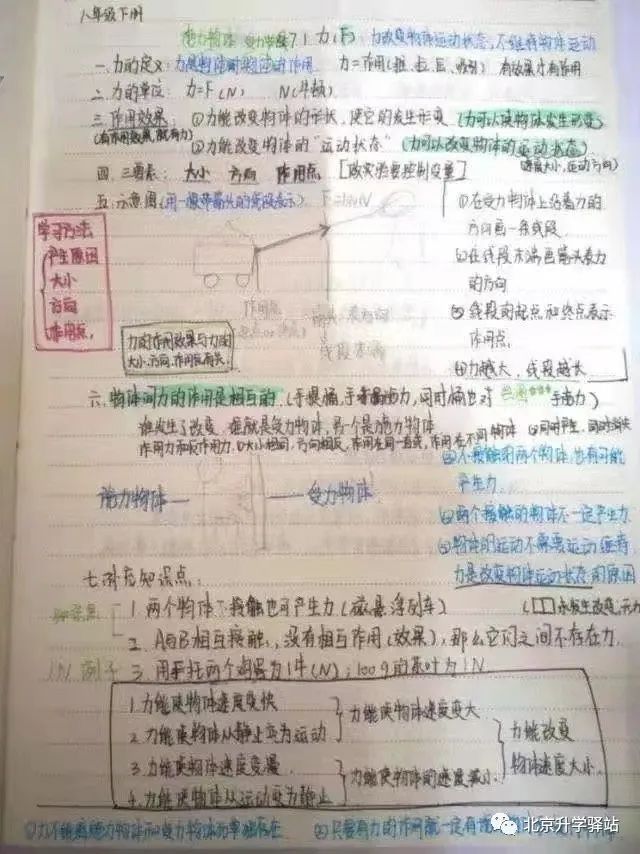 八年级下册
施力物体 受力物体 7.1 力(F): 力改变物体运动状态,不维持物体运动
一、力的定义: 力是物体对物体的作用 力=作用(推、拉、压、吸引) 有效果才有作用
二、力的单位: 力=F(N) N(牛顿)
三、作用效果: ①力能改变物体的形状,使它的发生形变 (力可以使物体发生形变)
(有作用效果,就有力) ②力能改变物体的“运动状态” (力可以改变物体的运动状态)
(速度大小,运动方向)
四、三要素: 大小 方向 作用点 [做实验要控制变量]
五、示意图(用一根带箭头的线段表示)
学习方法
产生原因
大小
方向
作用点
力的作用效果与力的
大小、方向、作用点有关.
①在受力物体上沿着力的
方向画一条线段
②在线段末端画箭头表力
的方向
③线段的起点和终点表示
作用点.
④力越大,线段越长
六、物体间力的作用是相互的.(手提桶,手对桶施力,同时桶也对 手施力)
谁发生了改变,谁就是受力物体,另一个是施力物体
作用力和反作用力,①大小相同,方向相反,作用在同一直线,作用在不同物体 ②同时产生,同时消失
施力物体—— ——受力物体
①不接触的两个物体,也有可能
产生力.
②两个接触的物体不一定产生力
③物体的运动不需要运动维持
力是改变物体运动状态的原因
七、补充知识点:
1. 两个物体不接触也可产生力(磁悬浮列车)
2. A与B相互接触,没有相互作用(效果),那么它们之间不存在力.
1N 例子 3. 用手托两个鸡蛋为1牛(N);100g的 为1N
1. 力能使物体速度变快
2. 力能使物体从静止变为运动
力能使物体速度变大
3. 力能使物体速度变慢
4. 力能使物体从运动变为静止
力能使物体的速度减小
力能改变
物体速度大小
①力不能离施力物体和受力物体而单独存在 ②只要有力的作用就一定有
北京升学驿站